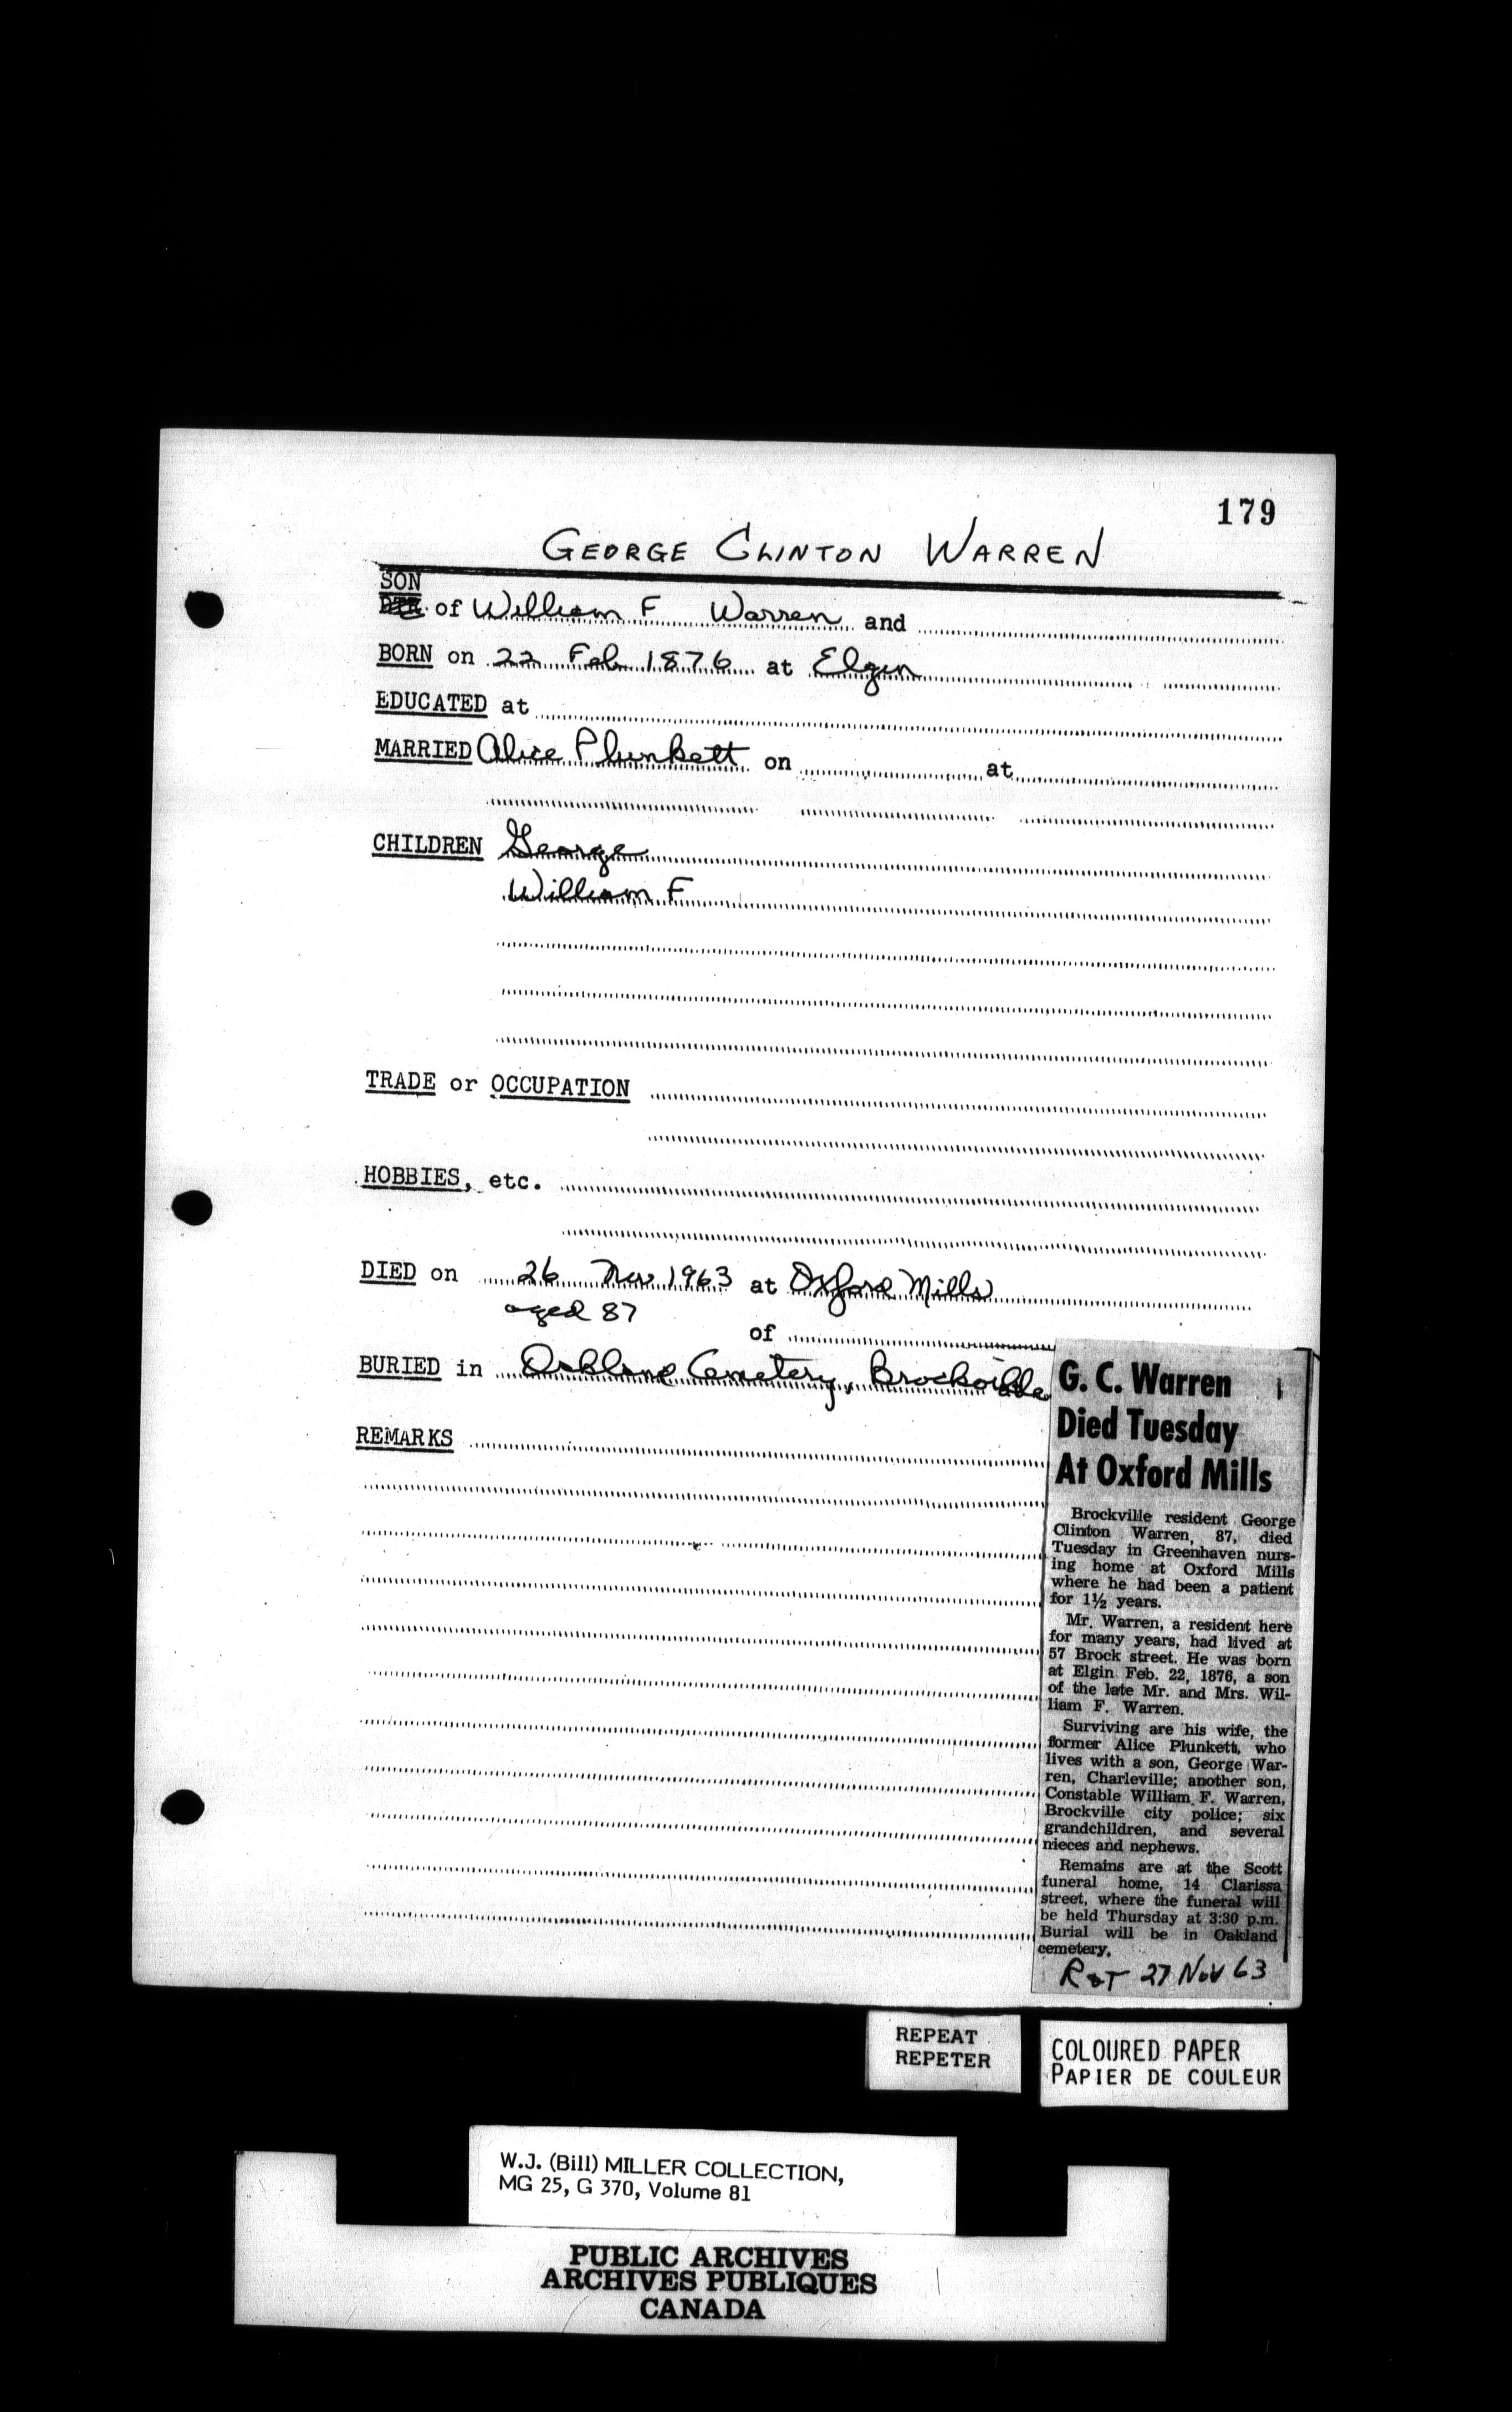 179
GEORGE CLINTON WARREN
SON
DTR. of William F Warren and
BORN on 22 Feb 1876 at Elgin
EDUCATED at
MARRIED Alice Plunkett on at
CHILDREN George
William F
TRADE or OCCUPATION
HOBBIES, etc.
DIED on 26 Nov 1963 at Oxford Mills
aged 87
of
BURIED in Oakland Cemetery, Brockville
REMARKS
G. C. Warren
Died Tuesday
At Oxford Mills
Brockville resident George
Clinton Warren, 87, died
Tuesday in Greenhaven nurs-
ing home at Oxford Mills
where he had been a patient
for 1½ years.
Mr. Warren, a resident here
for many years, had lived at
57 Brock street. He was born
at Elgin Feb. 22, 1876, a son
of the late Mr. and Mrs. Wil-
liam F. Warren.
Surviving are his wife, the
former Alice Plunkett, who
lives with a son, George War-
ren, Charleville; another son,
Constable William F. Warren,
Brockville city police; six
grandchildren, and several
nieces and nephews.
Remains are at the Scott
funeral home, 14 Clarissa
street, where the funeral will
be held Thursday at 3:30 p.m.
Burial will be in Oakland
cemetery.
R&T 27 Nov 63
REPEAT
REPETER
COLOURED PAPER
PAPIER DE COULEUR
W.J. (Bill) MILLER COLLECTION,
MG 25, G 370, Volume 81
PUBLIC ARCHIVES
ARCHIVES PUBLIQUES
CANADA